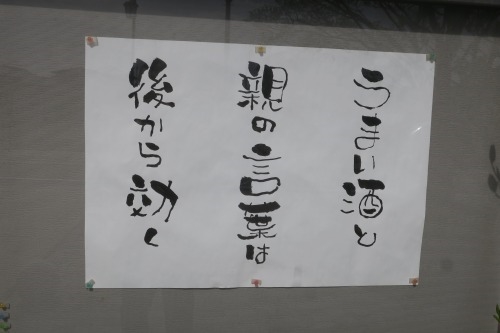 うまい酒と
親の言葉は
後から効く